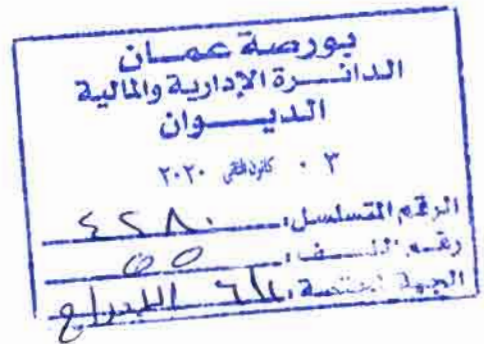 بورصة عمان
الدائرة الإدارية والمالية
الديوان
٠٣ كانون الثاني ٢٠٢٠
الرقم المتسلسل: ٤٢٨٠
رقم الملف: ٥٥
الجهة المختصة: